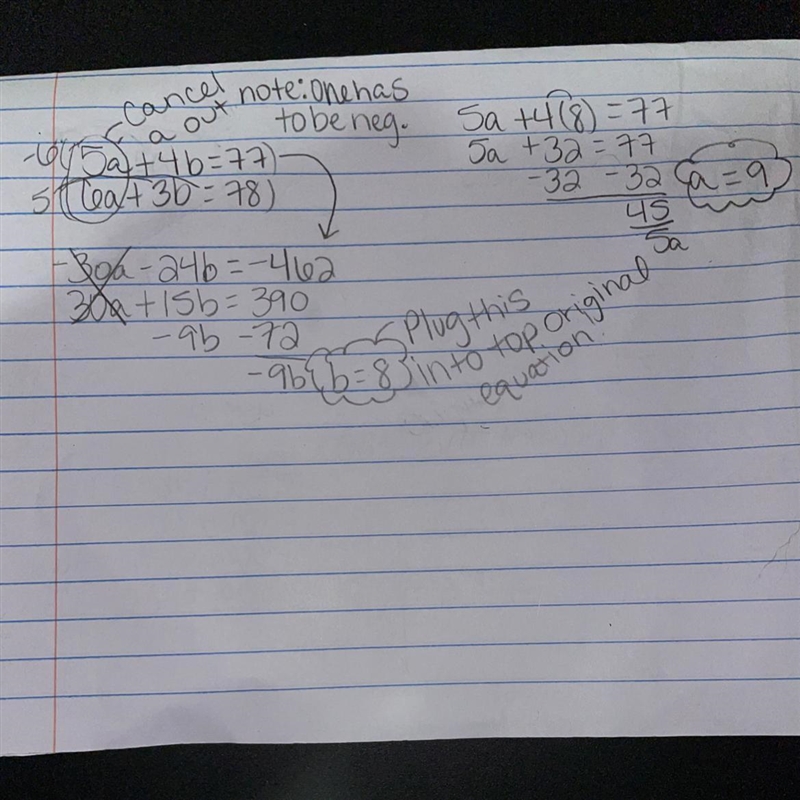 cancel
a out
note: one has
to be neg.
-6(5a + 4b = 77)
5(6a + 3b = 78)
-30a - 24b = -462
30a + 15b = 390
-9b -72
-9b b = 8
Plug this
into top original
equation.
5a + 4(8) = 77
5a + 32 = 77
-32 -32
45
5a
a = 9